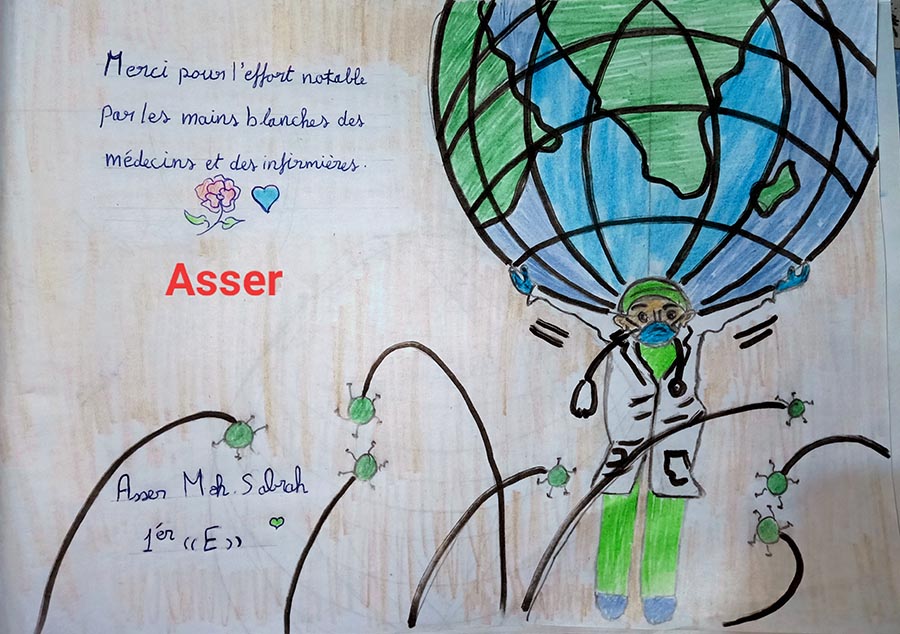 Merci pour l'effort notable
par les mains blanches des
médecins et des infirmières.
Asser
Asser Mah. Sabrah
1ér «E»